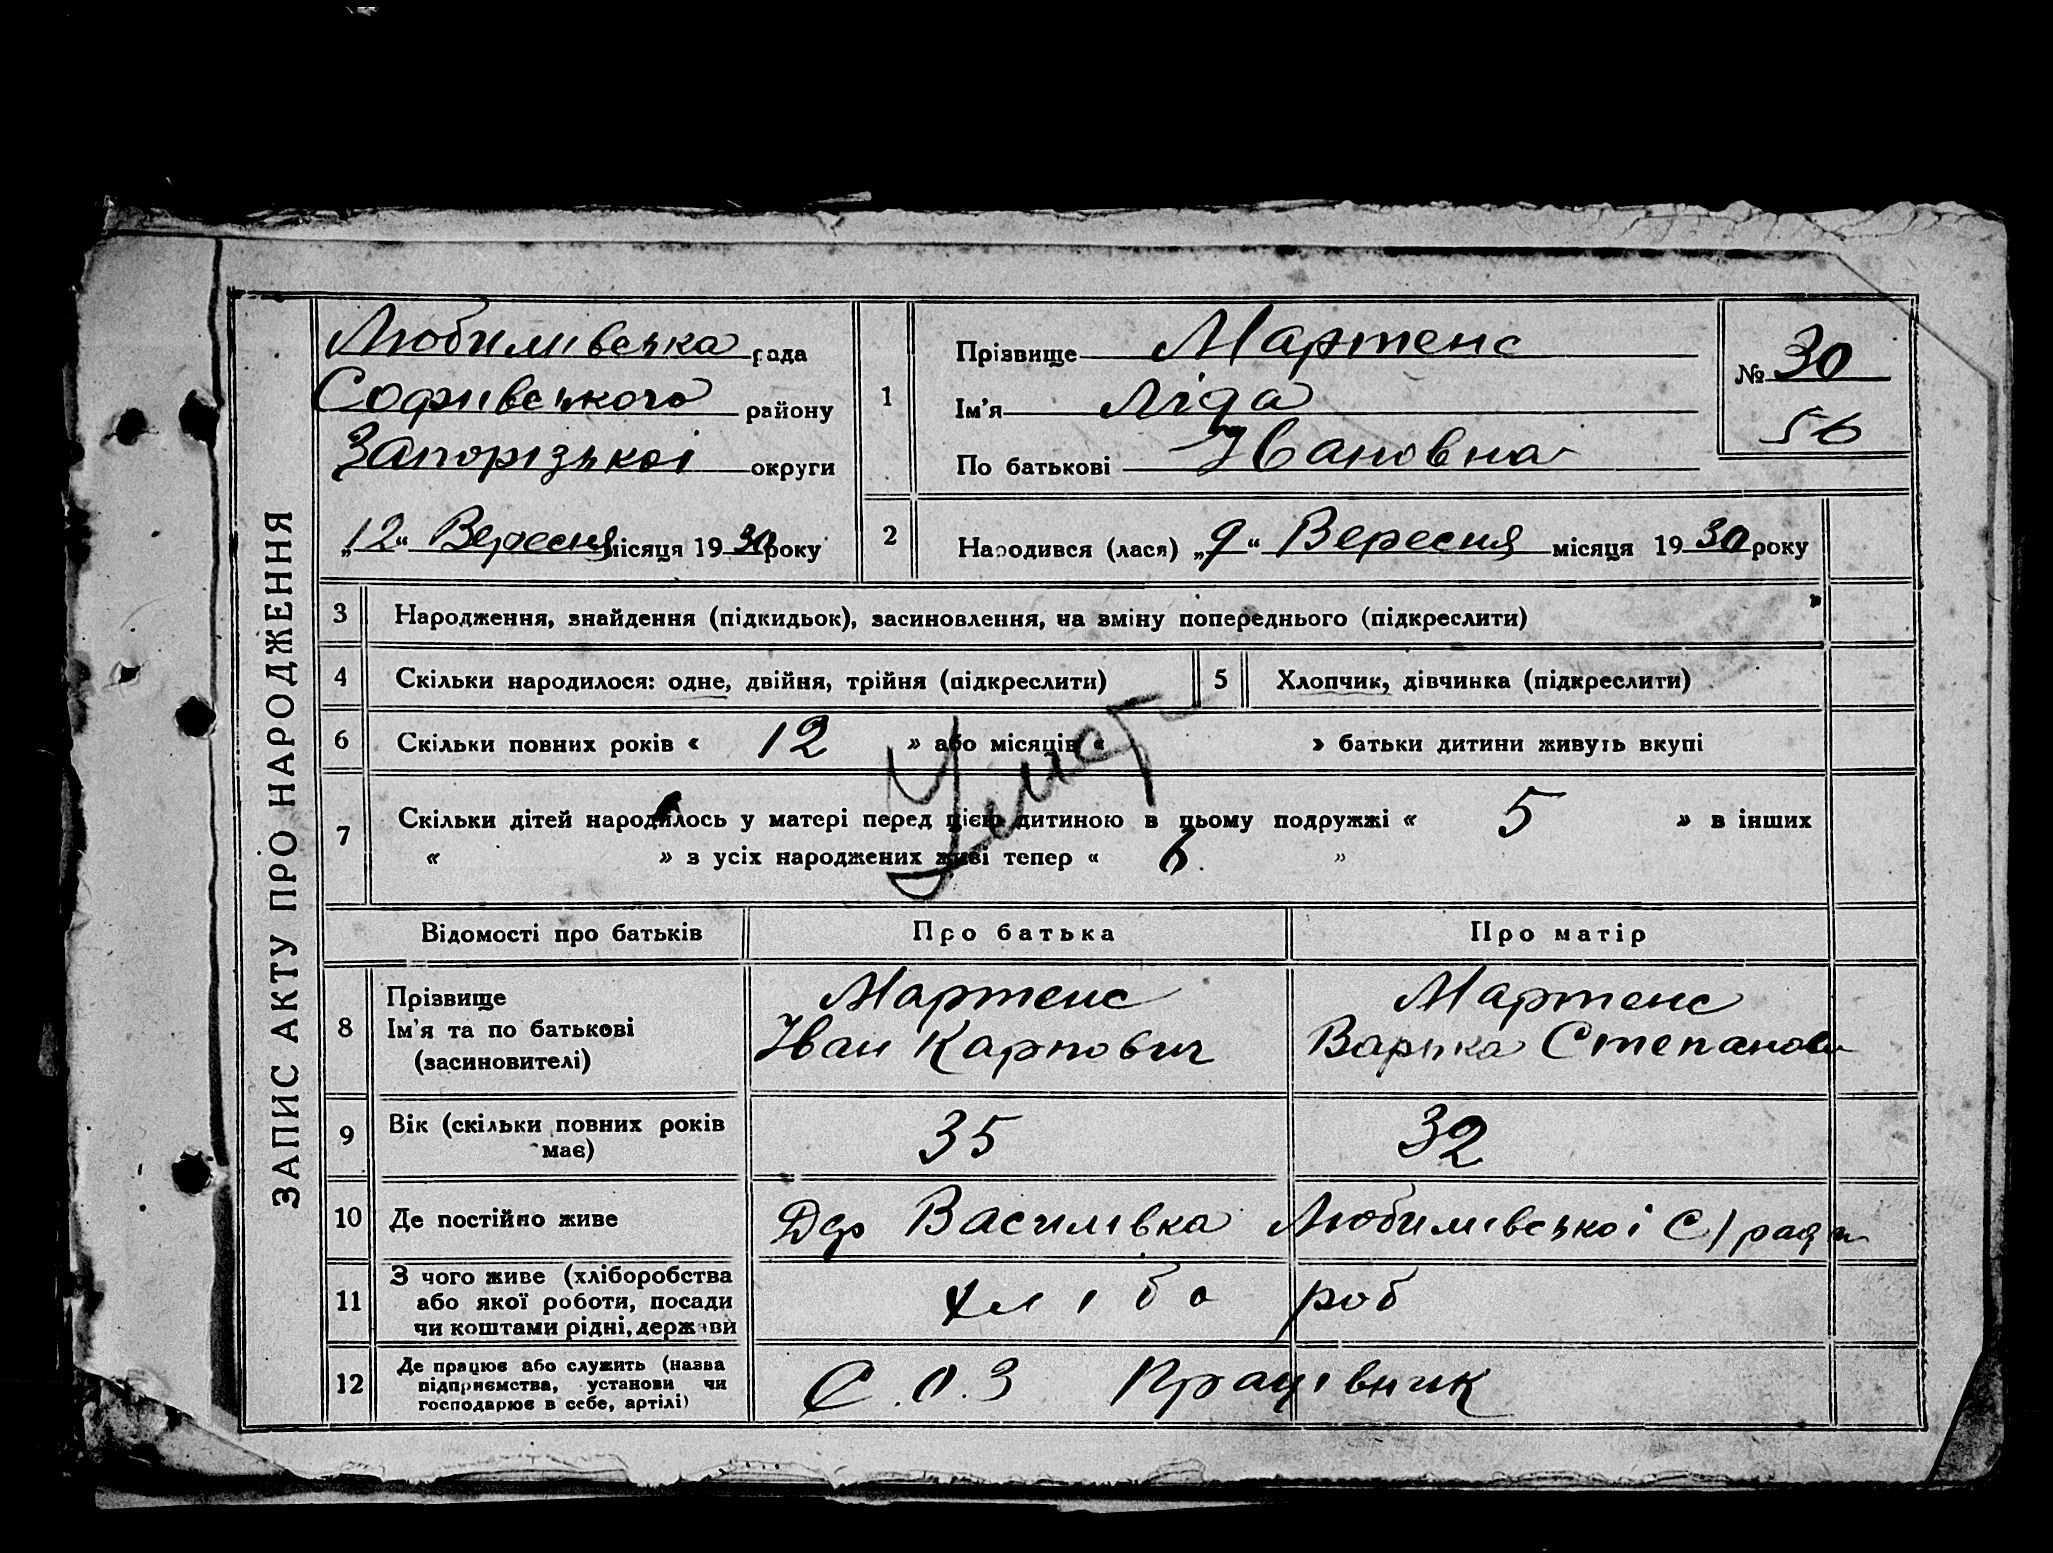 ЗАПИС АКТУ ПРО НАРОДЖЕННЯ
Любимівська рада
Софиівського району
Запорізької округи
„12“ Вересня місяця 1930 року
1
Прізвище Мартенс
Ім’я Ліда
По батькові Івановна
№ 30
56
2
Народився (лася) „9“ Вересня місяця 1930 року
3 Народження, знайдення (підкидьок), засиновлення, на зміну попереднього (підкреслити)
4 Скільки народилося: одне, двійня, трійня (підкреслити)
5 Хлопчик, дівчинка (підкреслити)
6 Скільки повних років « 12 » або місяців « » батьки дитини живуть вкупі
7 Скільки дітей народилось у матері перед цією дитиною в цьому подружжі « 5 » в інших
« » з усіх народжених живі тепер « 6. »
Відомості про батьків Про батька Про матір
8
Прізвище Мартенс Мартенс
Ім’я та по батькові Іван Карпович Варька Степанов
(засиновителі)
9 Вік (скільки повних років має) 35 32
10 Де постійно живе Дер Василівка Любимівської С/ради
11 З чого живе (хліборобства
або якої роботи, посади
чи коштами рідні, держави хлібороб
12 Де працює або служить (назва
підприємства, установи чи
господарює в себе, артілі) С.О.З Працівник